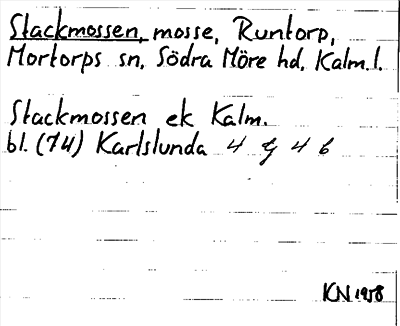 Stackmossen, mosse, Runtorp,
Mortorps sn, Södra Möre hd, Kalm. l.
Stackmossen ek Kalm.
bl. (74) Karlslunda 4 G 4 b
KN 1958